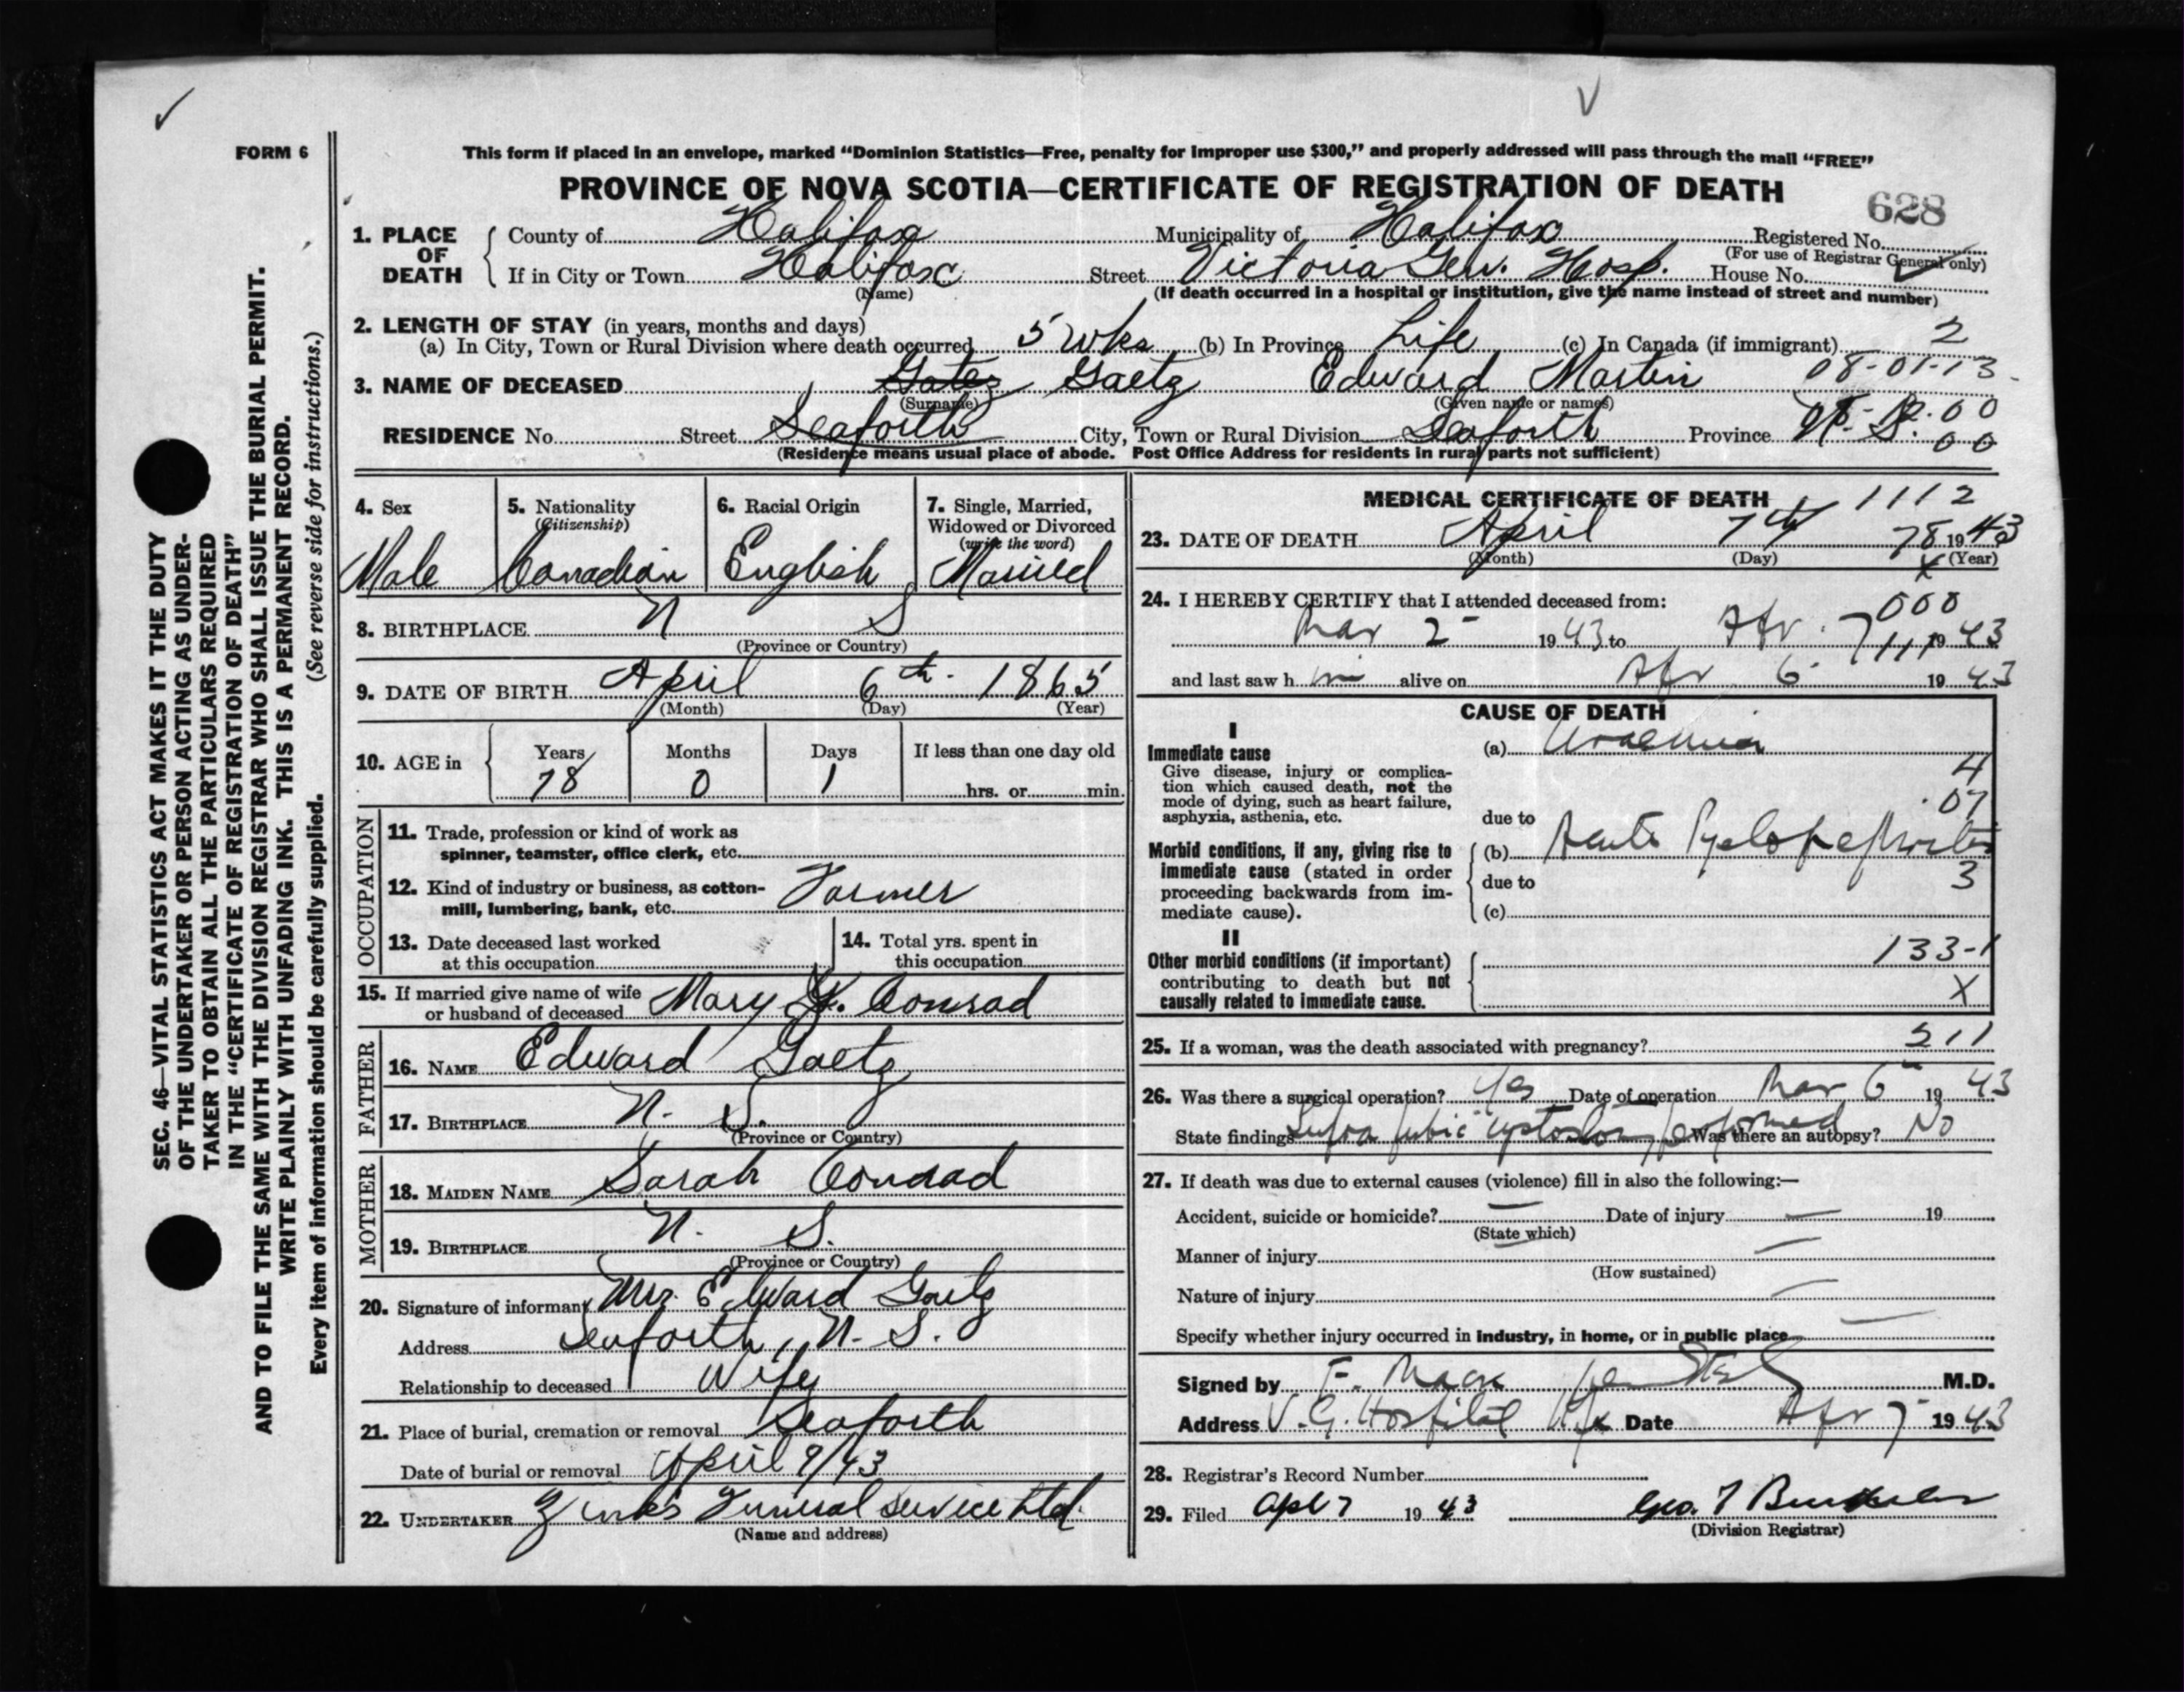 FORM 6
This form if placed in an envelope, marked “Dominion Statistics—Free, penalty for improper use $300,” and properly addressed will pass through the mail “FREE”
PROVINCE OF NOVA SCOTIA—CERTIFICATE OF REGISTRATION OF DEATH
628
1. PLACE OF DEATH
County of Halifax Municipality of Halifax Registered No.
(For use of Registrar General only)
If in City or Town Halifax Street Victoria Gen. Hosp. House No.
(Name) (If death occurred in a hospital or institution, give the name instead of street and number)
2. LENGTH OF STAY (in years, months and days)
(a) In City, Town or Rural Division where death occurred 5 wks (b) In Province Life (c) In Canada (if immigrant) 2
08-01-13
3. NAME OF DECEASED Gates Gaetz Edward Martin
(Surname) (Given name or names)
RESIDENCE No. Street Seaforth City, Town or Rural Division Seaforth Province N. S. 00
(Residence means usual place of abode. Post Office Address for residents in rural parts not sufficient)
4. Sex Male
5. Nationality (Citizenship) Canadian
6. Racial Origin English
7. Single, Married, Widowed or Divorced (write the word) Married
8. BIRTHPLACE N S
(Province or Country)
9. DATE OF BIRTH April 6th. 1865
(Month) (Day) (Year)
10. AGE in Years Months Days If less than one day old
78 0 1 hrs. or min.
OCCUPATION
11. Trade, profession or kind of work as spinner, teamster, office clerk, etc.
12. Kind of industry or business, as cotton-mill, lumbering, bank, etc. Farmer
13. Date deceased last worked at this occupation
14. Total yrs. spent in this occupation
15. If married give name of wife or husband of deceased Mary Conrad
FATHER
16. NAME Edward Gaetz
17. BIRTHPLACE N. S.
(Province or Country)
MOTHER
18. MAIDEN NAME Sarah Conrad
19. BIRTHPLACE N. S.
(Province or Country)
20. Signature of informant Mrs. Edward Gaetz
Address Seaforth, N. S.
Relationship to deceased Wife
21. Place of burial, cremation or removal Seaforth
Date of burial or removal April 9/43
22. UNDERTAKER Zinks Funeral Service Ltd.
(Name and address)
MEDICAL CERTIFICATE OF DEATH 1112
23. DATE OF DEATH April 7th 78 1943
(Month) (Day) (Year)
X
24. I HEREBY CERTIFY that I attended deceased from: 000
Mar 2 1943 to Apr. 7 1943
111
and last saw him alive on Apr 6 1943
CAUSE OF DEATH
I
Immediate cause
Give disease, injury or complication which caused death, not the mode of dying, such as heart failure, asphyxia, asthenia, etc.
(a) Uraemia
4
07
due to
Morbid conditions, if any, giving rise to immediate cause (stated in order proceeding backwards from immediate cause).
(b) Acute Pyelonephritis
due to 3
(c)
II
Other morbid conditions (if important) contributing to death but not causally related to immediate cause.
133-1
X
25. If a woman, was the death associated with pregnancy? 211
26. Was there a surgical operation? Yes Date of operation Mar 6th 1943
State findings Supra pubic cystostomy performed Was there an autopsy? No
27. If death was due to external causes (violence) fill in also the following:—
Accident, suicide or homicide? — Date of injury — 19
(State which)
Manner of injury —
(How sustained)
Nature of injury —
Specify whether injury occurred in industry, in home, or in public place —
Signed by F. Mack M.D.
Address V.G. Hospital Hfx Date Apr 7 1943
28. Registrar's Record Number
29. Filed Apl 7 1943 Geo. T
(Division Registrar)
SEC. 46—VITAL STATISTICS ACT MAKES IT THE DUTY
OF THE UNDERTAKER OR PERSON ACTING AS UNDER-
TAKER TO OBTAIN ALL THE PARTICULARS REQUIRED
IN THE “CERTIFICATE OF REGISTRATION OF DEATH”
AND TO FILE THE SAME WITH THE DIVISION REGISTRAR WHO SHALL ISSUE THE BURIAL PERMIT.
WRITE PLAINLY WITH UNFADING INK. THIS IS A PERMANENT RECORD.
Every item of information should be carefully supplied. (See reverse side for instructions.)